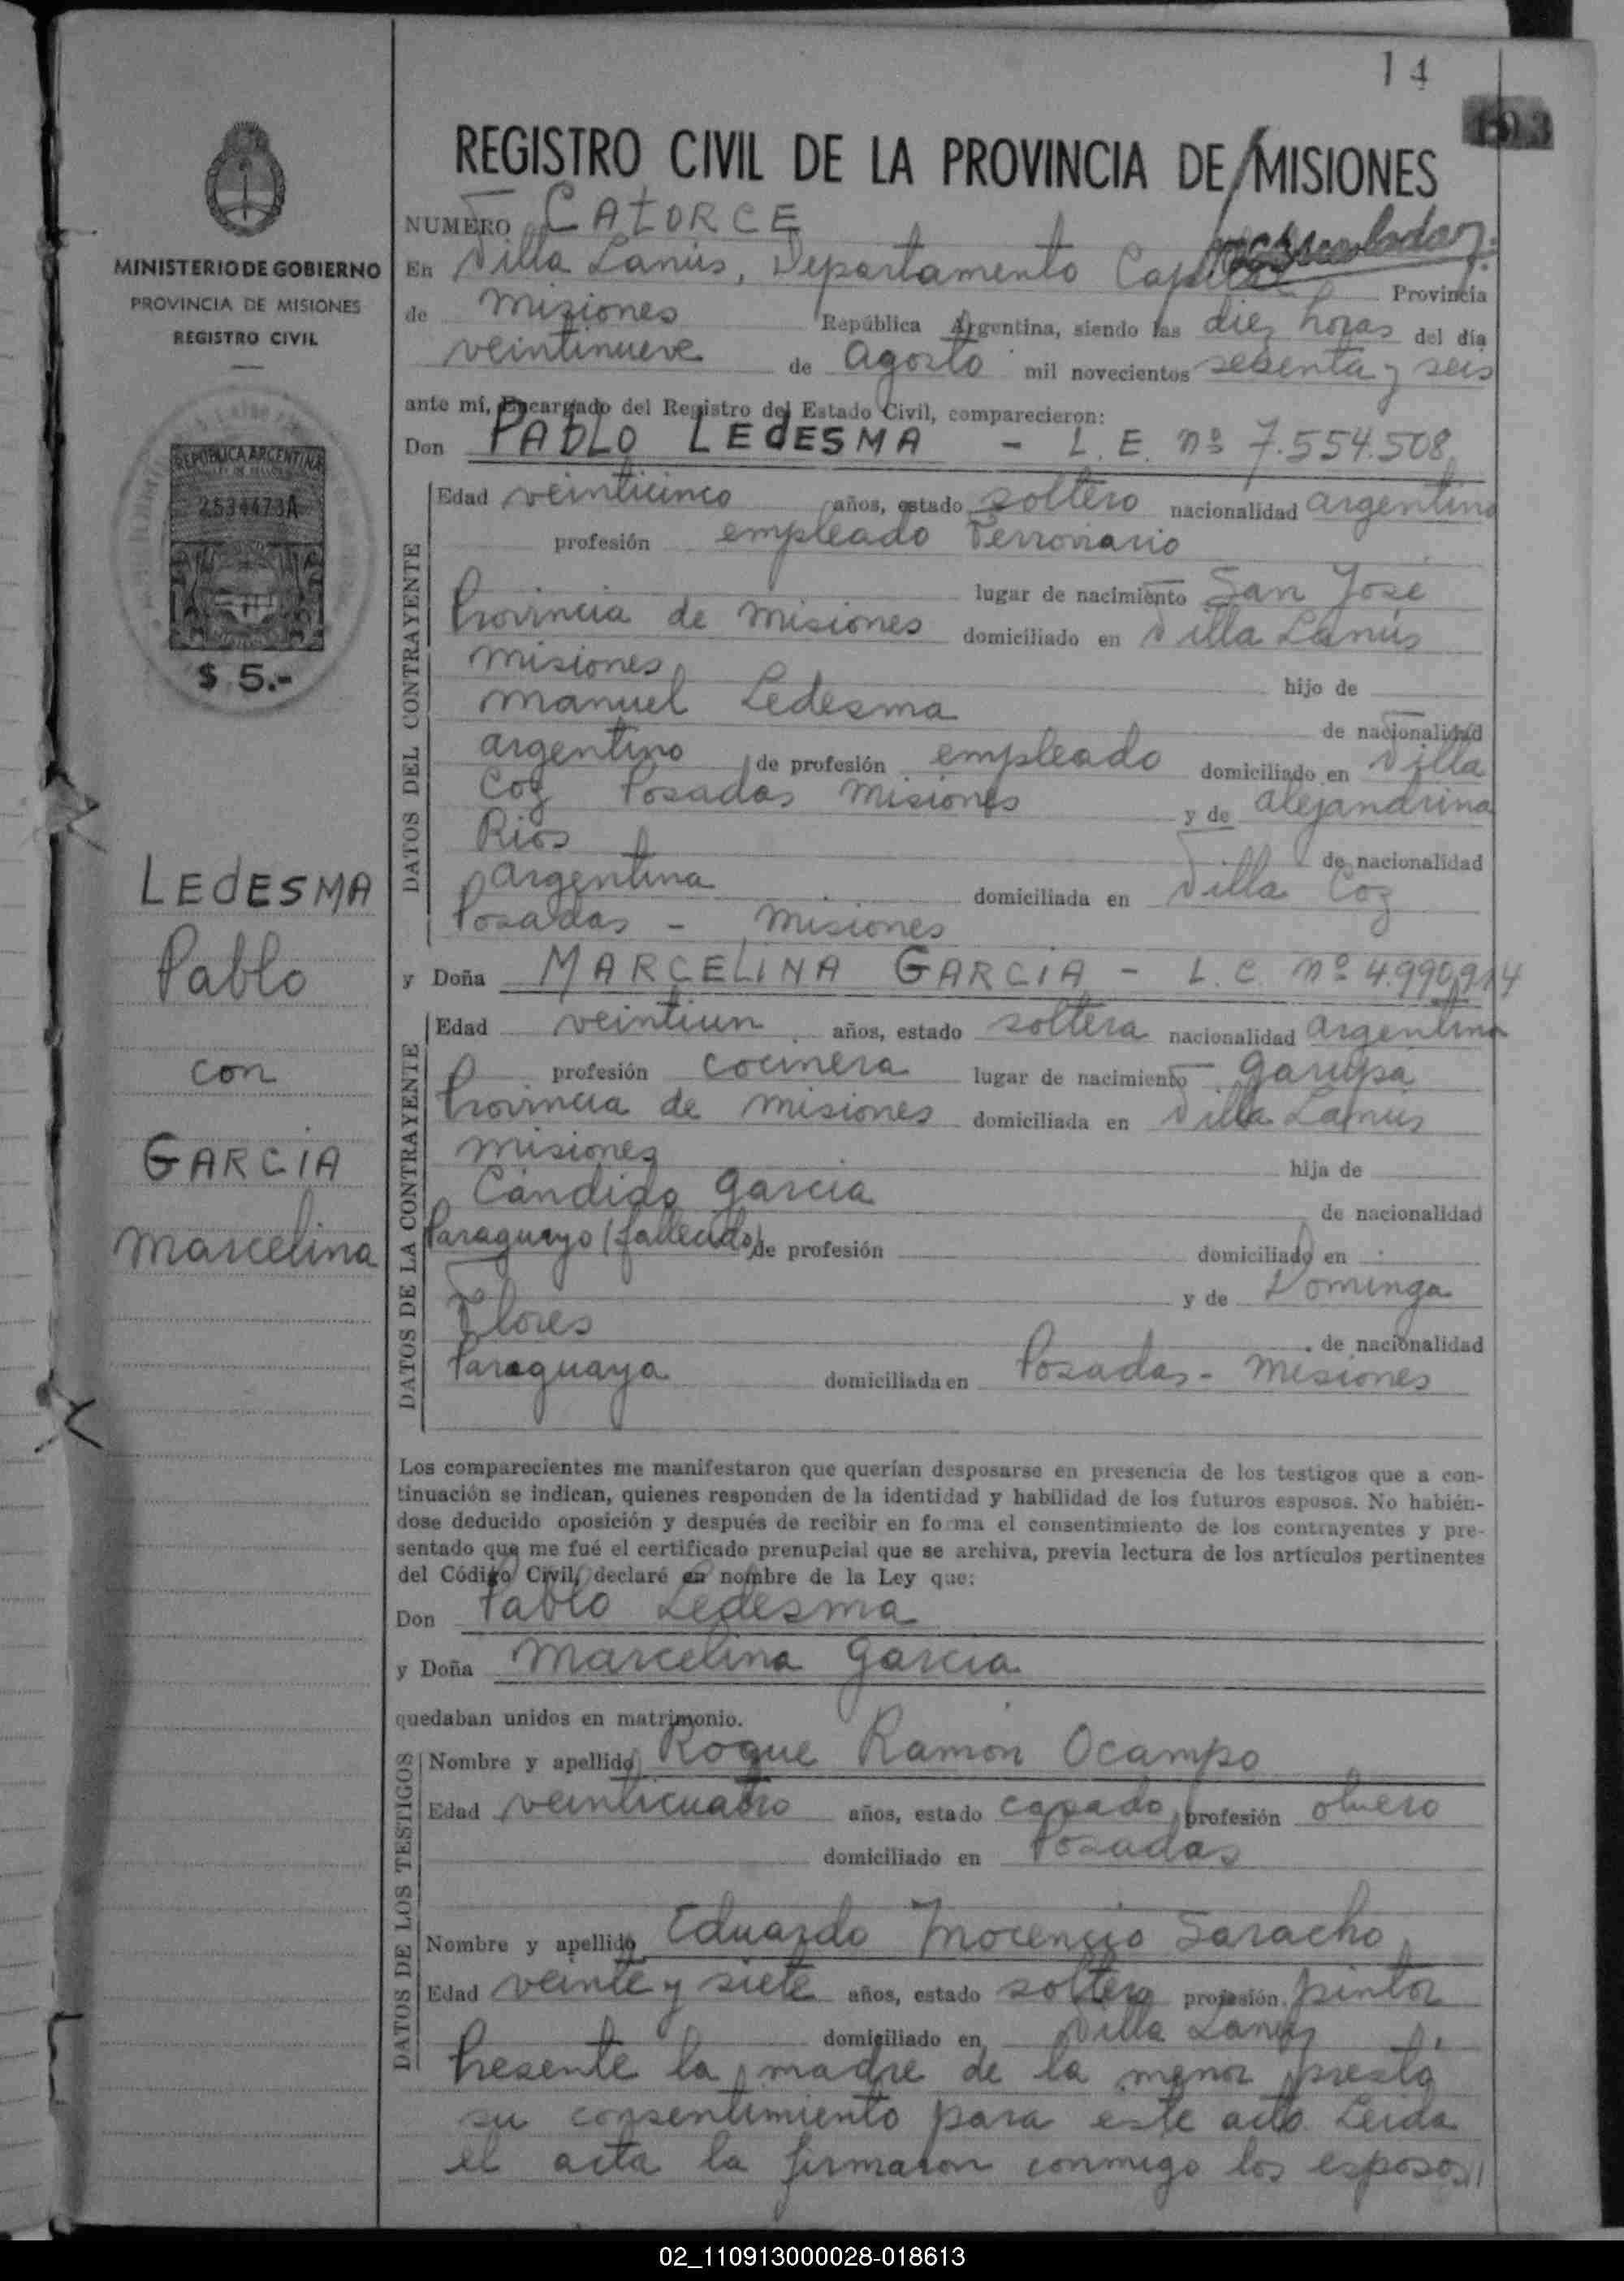 14
REGISTRO CIVIL DE LA PROVINCIA DE MISIONES
MINISTERIO DE GOBIERNO
PROVINCIA DE MISIONES
REGISTRO CIVIL
REPUBLICA ARGENTINA
2534473A
$ 5.-
LEDESMA
Pablo
con
GARCIA
Marcelina
NUMERO CATORCE
En Villa Lanús, Departamento Capital Provincia
de Misiones República Argentina, siendo las diez horas del día
veintinueve de Agosto mil novecientos sesenta y seis
ante mí, Encargado del Registro del Estado Civil, comparecieron:
Don PABLO LEDESMA - L. E. nº 7.554.508
DATOS DEL CONTRAYENTE
Edad veinticinco años, estado soltero nacionalidad argentino
profesión empleado Ferroviario
lugar de nacimiento San José
Provincia de Misiones domiciliado en Villa Lanús
Misiones hijo de
Manuel Ledesma de nacionalidad
argentino de profesión empleado domiciliado en Villa
Coz Posadas Misiones y de Alejandrina
Rios de nacionalidad
argentina domiciliada en Villa Coz
Posadas - Misiones
y Doña MARCELINA GARCIA - L. C. nº 4.990.914
DATOS DE LA CONTRAYENTE
Edad veintiun años, estado soltera nacionalidad argentina
profesión cocinera lugar de nacimiento Garupa
Provincia de Misiones domiciliada en Villa Lanús
Misiones hija de
Cándido Garcia de nacionalidad
Paraguayo (fallecido) de profesión domiciliado en
y de Dominga
Flores de nacionalidad
Paraguaya domiciliada en Posadas - Misiones
Los comparecientes me manifestaron que querían desposarse en presencia de los testigos que a con-
tinuación se indican, quienes responden de la identidad y habilidad de los futuros esposos. No habién-
dose deducido oposición y después de recibir en forma el consentimiento de los contrayentes y pre-
sentado que me fué el certificado prenupcial que se archiva, previa lectura de los artículos pertinentes
del Código Civil, declaré en nombre de la Ley que:
Don Pablo Ledesma
y Doña Marcelina Garcia
quedaban unidos en matrimonio.
DATOS DE LOS TESTIGOS
Nombre y apellido Roque Ramón Ocampo
Edad veinticuatro años, estado casado profesión obrero
domiciliado en Posadas
Nombre y apellido Eduardo Inocencio Saracho
Edad veinte y siete años, estado soltero profesión pintor
domiciliado en Villa Lanús
Presente la madre de la menor prestó
su consentimiento para este acto. Leída
el acta la firmaron conmigo los esposos//
02_110913000028-018613